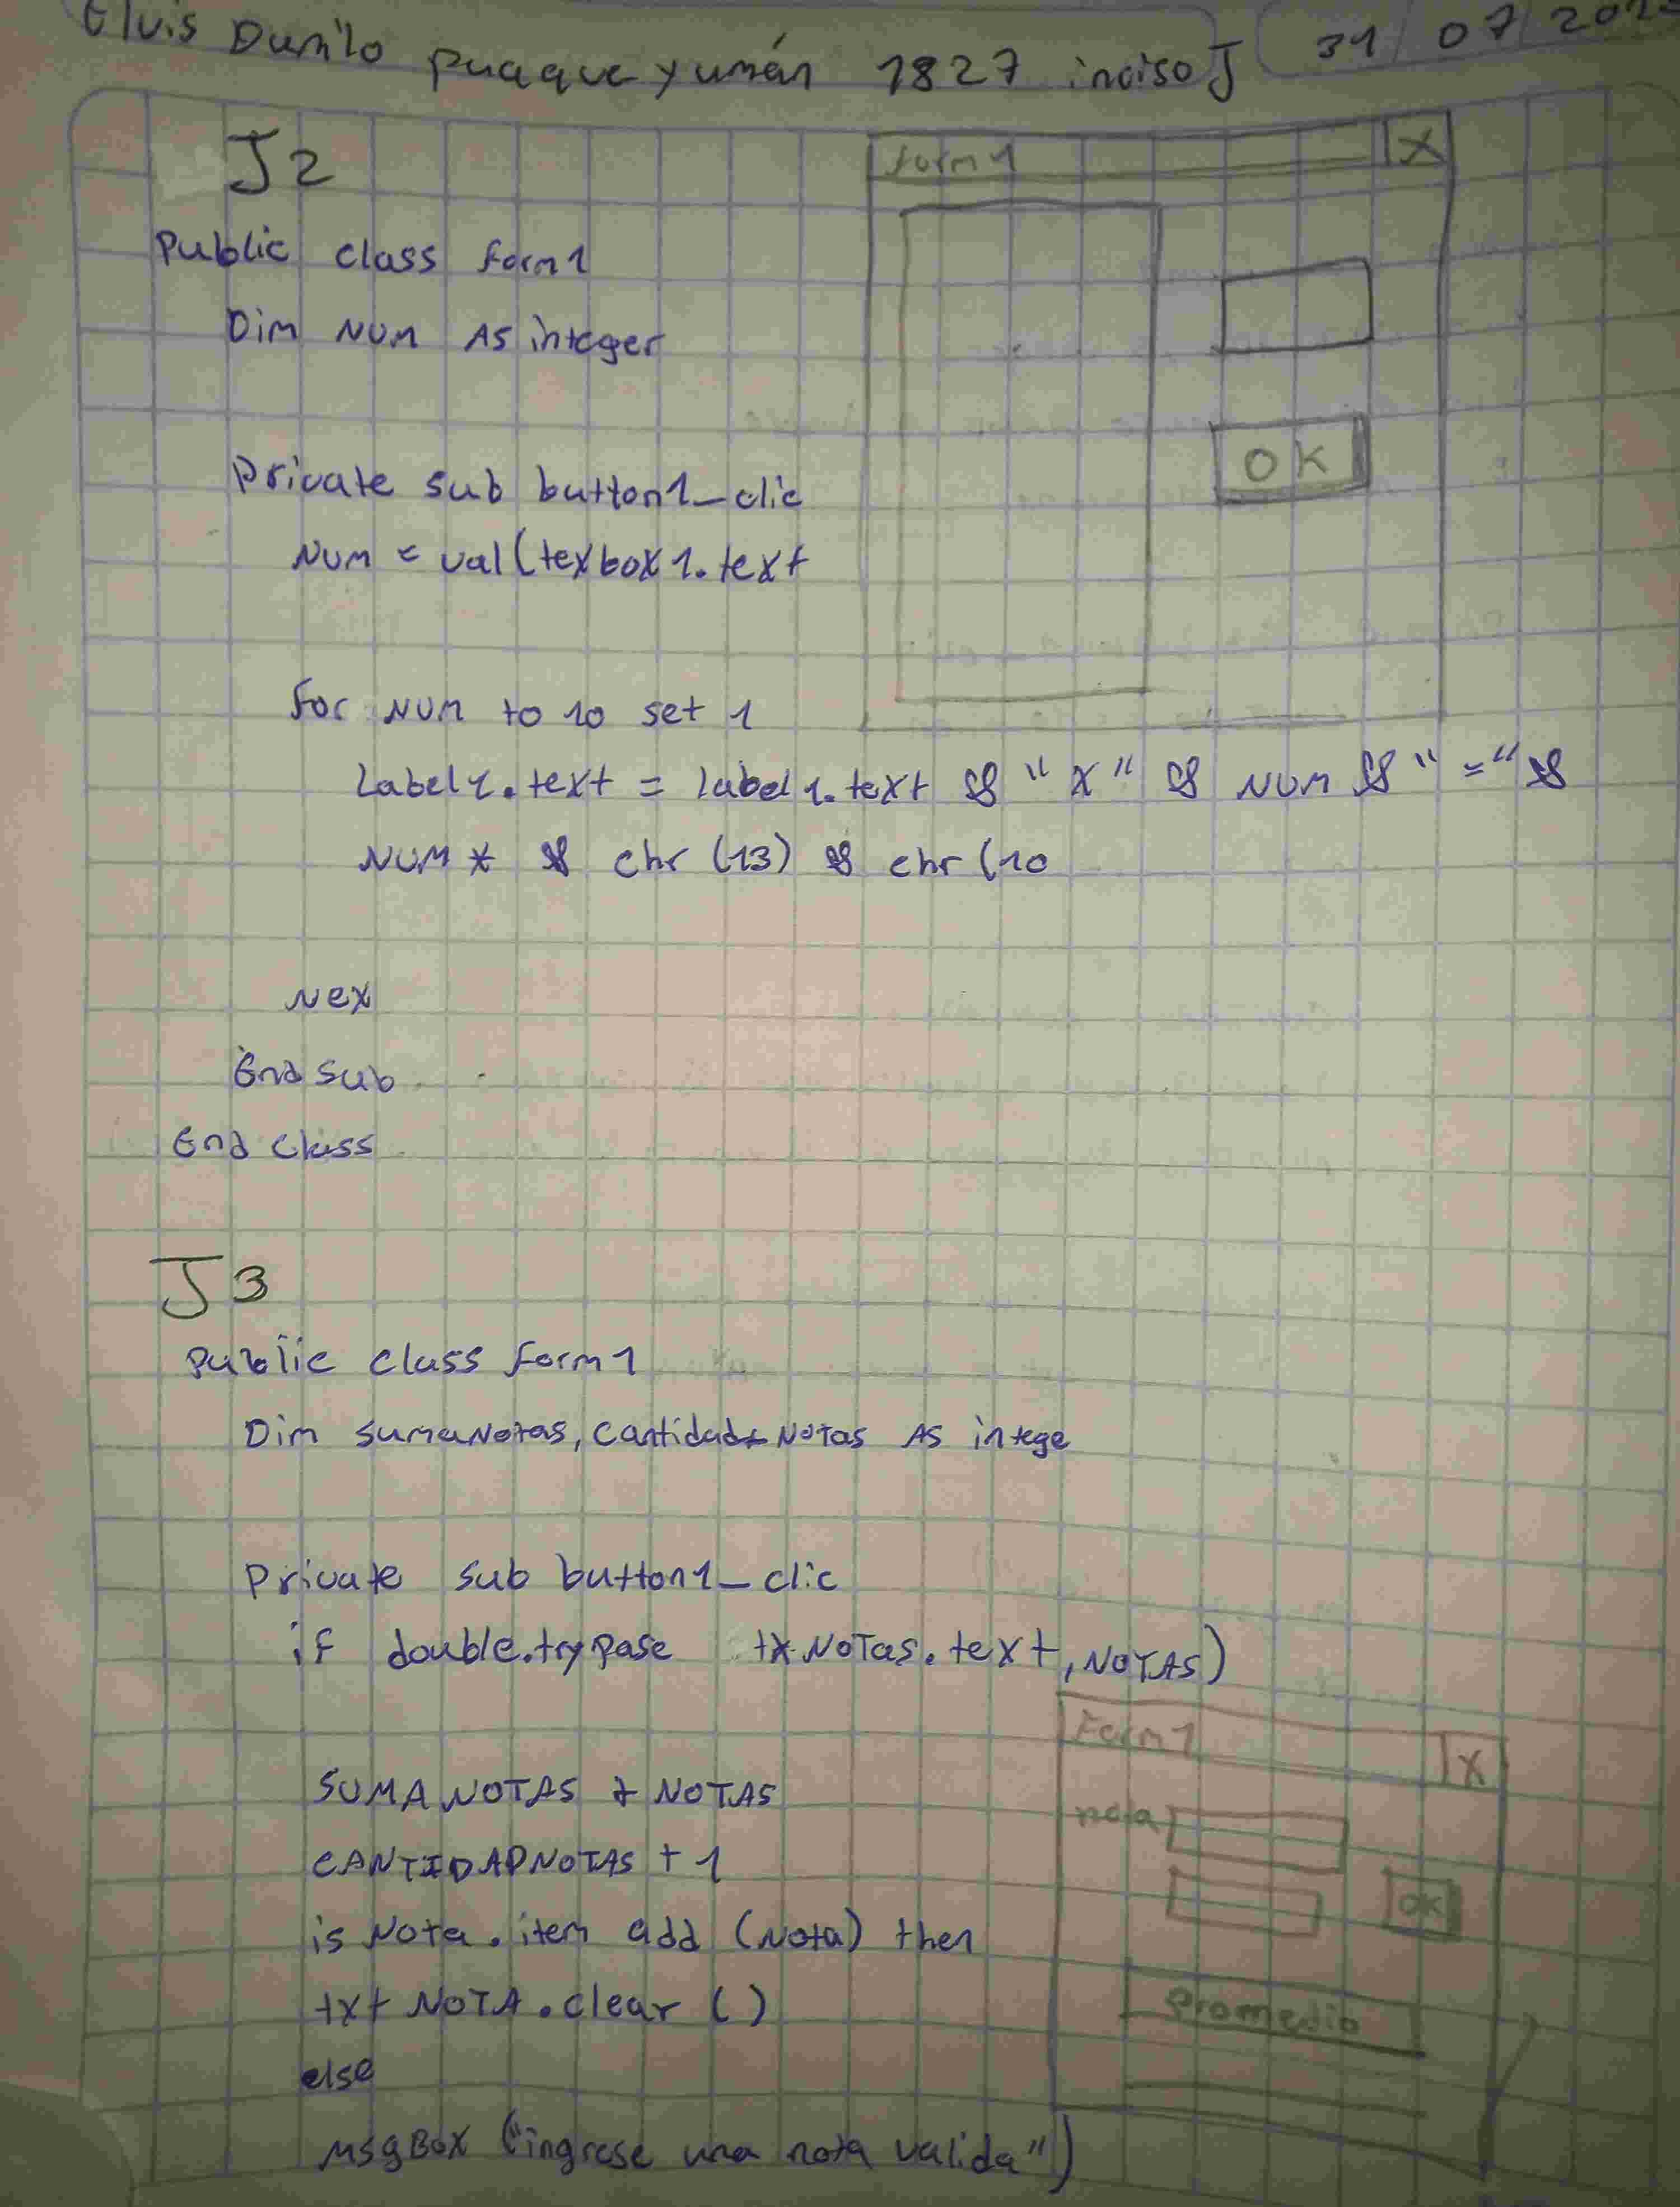 Elvis Danilo puaque yumán 1827 inciso J 31/07/202
J2
Form1 X
Public class form1
Dim NUM As integer
OK
private sub button1_clic
NUM = val(texbox1.text
for NUM to 10 set 1
Label1.text = label1.text & "x" & NUM & "=" &
NUM * & chr (13) & chr (10
Nex
End sub
End class
J3
public class form1
Dim sumaNotas, cantidadNotas As intege
private sub button1_clic
if double.trypase tx.NoTas.text, NOTAS)
SUMANOTAS + NOTAS
CANTIDADNOTAS + 1
is Nota.item add (Nota) then
txt NOTA.clear ()
else
MSgBox ("ingrese una nota valida")
Form1 X
nota
OK
promedio